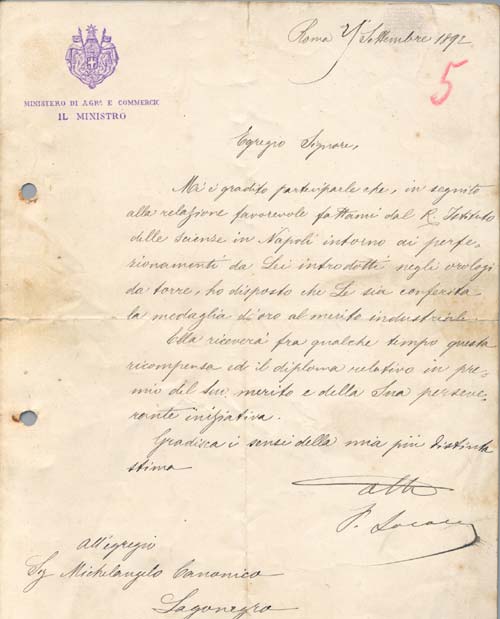 Roma Settembre 1892
5
MINISTERO DI AGRA E COMMERCIO
IL MINISTRO
Egregio Signore,
Mi è gradito parteciparle che, in seguito
alla relazione favorevole fattami dal R. Istituto
delle scienze in Napoli intorno ai perfe-
zionamenti da Lei introdotti negli orologi
da torre, ho disposto che Le sia conferita
la medaglia d'oro al merito industriale.
Ella riceverà fra qualche tempo questa
ricompensa ed il diploma relativo in pre-
mio del suo merito e della Sua perseve-
rante iniziativa.
Gradisca i sensi della mia più distinta
stima
P. Lacava
all'egregio
Sig Michelangelo Canonico
Lagonegro